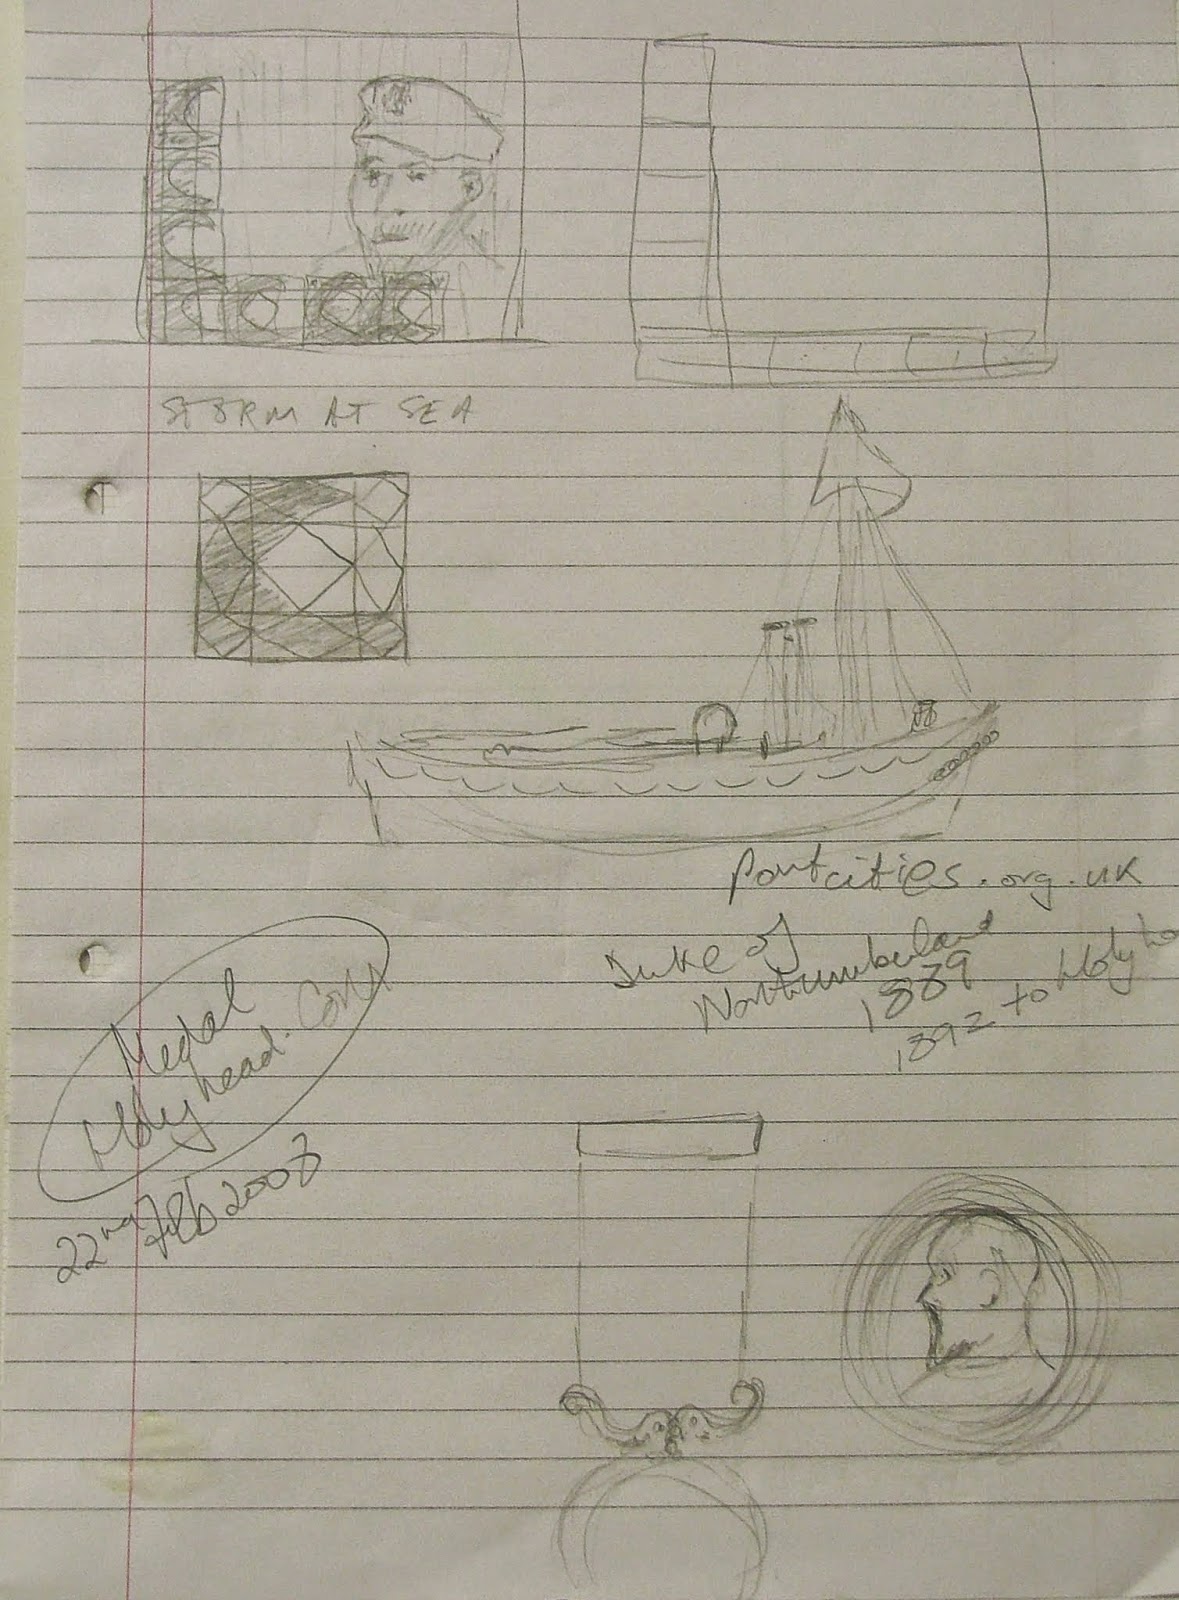 STORM AT SEA
portcities.org.uk
Duke of
Northumberland
1889
1892 to Holyh
Medal
Holyhead.Com
22nd Feb 2008